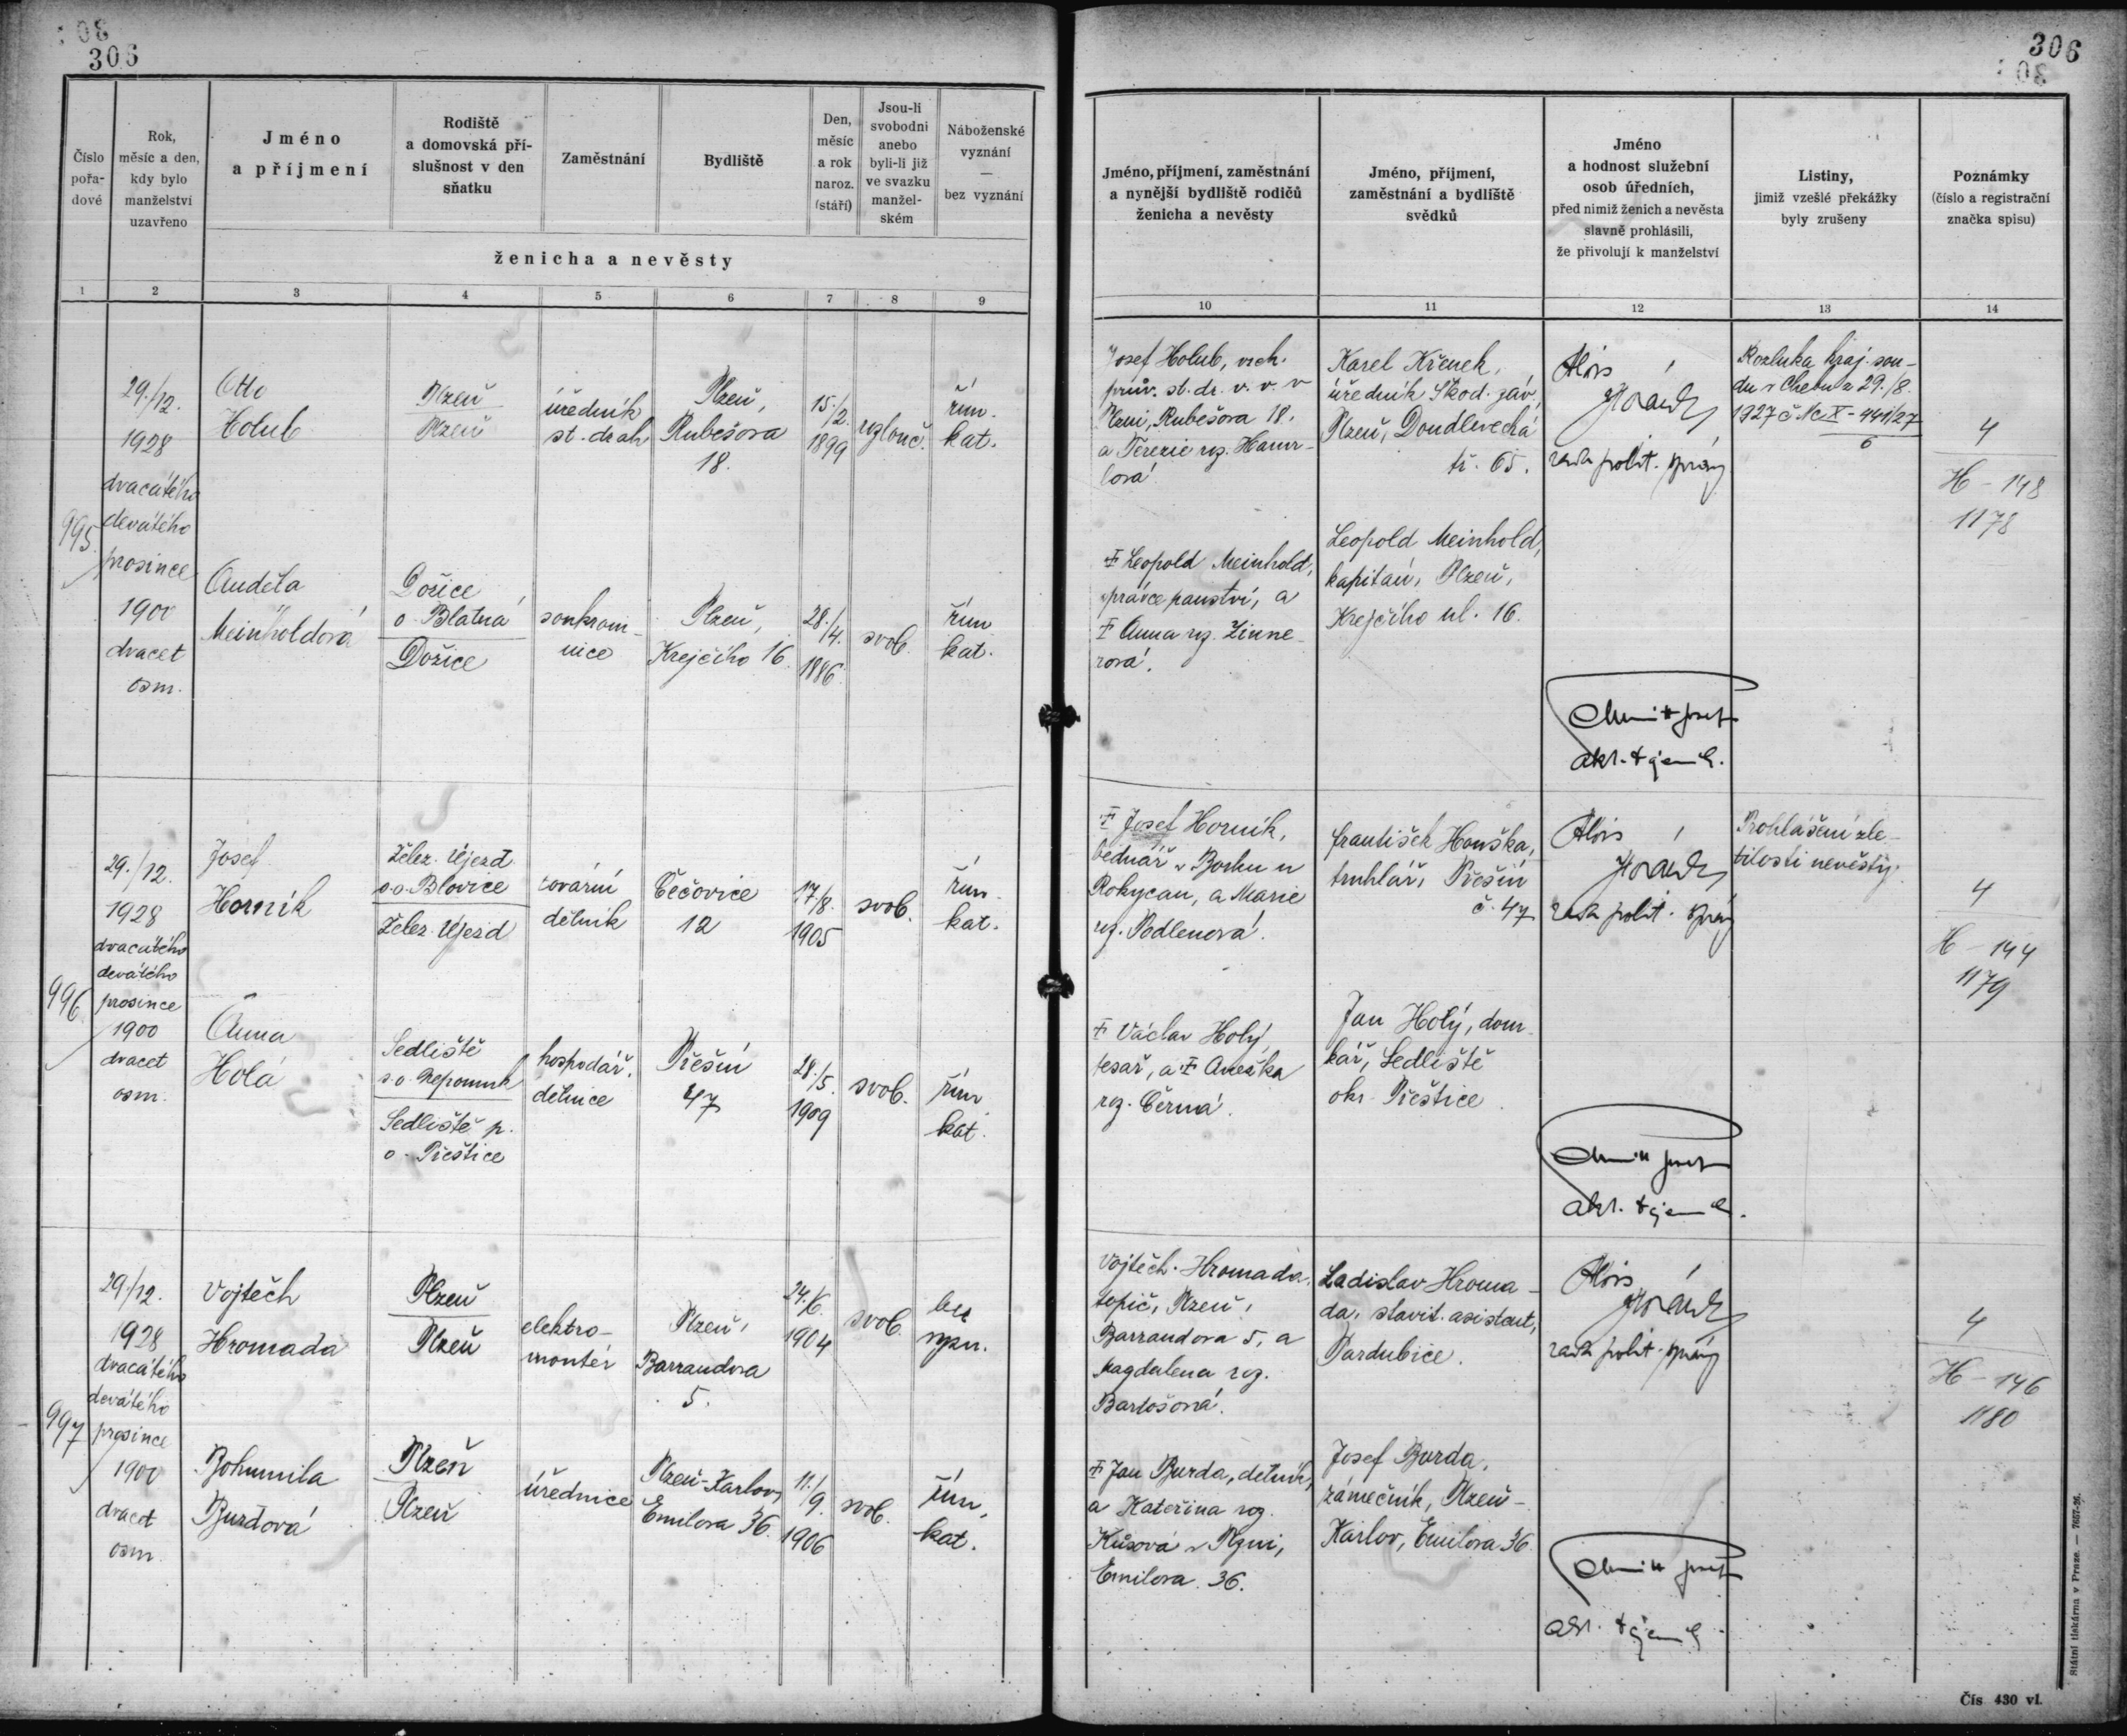 306
306
Číslo
pořa-
dové
Rok,
měsíc a den,
kdy bylo
manželství
uzavřeno
Jméno
a příjmení
Rodiště
a domovská pří-
slušnost v den
sňatku
Zaměstnání
Bydliště
Den,
měsíc
a rok
naroz.
(stáří)
Jsou-li
svobodni
anebo
byli-li již
ve svazku
manžel-
ském
Náboženské
vyznání
—
bez vyznání
ženicha a nevěsty
Jméno, příjmení, zaměstnání
a nynější bydliště rodičů
ženicha a nevěsty
Jméno, příjmení,
zaměstnání a bydliště
svědků
Jméno
a hodnost služební
osob úředních,
před nimiž ženich a nevěsta
slavně prohlásili,
že přivolují k manželství
Listiny,
jimiž vzešlé překážky
byly zrušeny
Poznámky
(číslo a registrační
značka spisu)
1 2 3 4 5 6 7 8 9
10 11 12 13 14
995
29./12.
1928
dvacátého
devátého
prosince
1900
dvacet
osm.
Otto
Holub
Plzeň
Plzeň
úředník
st. drah
Plzeň,
Rubešova
18.
15./2.
1899
rozlouč.
řím.
kat.
Josef Holub, vrch.
prův. st. dr. v. v. v
Plzni, Rubešova 18.
a Terezie roz. Hamr-
lová
Karel Křenek,
úředník Škod. záv.,
Plzeň, Doudlevecká
tř. 65.
Alois
rada polit. správy
Rozluka kraj. sou-
du v Chebu z 29./8.
1927 č Nc X - 441/27
6
4
H - 148
1178
Anděla
Meinholdová
Dožice
o. Blatná
Dožice
soukrom-
nice
Plzeň,
Krejčího 16.
28./4.
1886.
svob.
řím
kat.
† Leopold Meinhold,
správce panství, a
† Anna roz. Zinne-
rová.
Leopold Meinhold,
kapitán, Plzeň,
Krejčího ul. 16.
996
29./12.
1928
dvacátého
devátého
prosince
1900
dvacet
osm.
Josef
Horník
Želez. Újezd
s.o. Blovice
Želez. Újezd
tovární
dělník
Čečovice
12
17/8.
1905
svob.
řím.
kat.
† Josef Horník,
bednář v Borku u
Rokycan, a Marie
roz. Podlenová.
František Houška,
truhlář, Přešín
č. 47
Alois
rada polit. správy
Prohlášení zle-
tilosti nevěsty.
4
H - 144
1179
Anna
Holá
Sedliště
s.o. Nepomuk
Sedliště p.
o. Přeštice
hospodář.
dělnice
Přešín
47
28./5.
1909
svob.
řím
kat.
† Václav Holý,
tesař, a † Anežka
roz. Černá.
Jan Holý, dom-
kář, Sedliště
okr. Přeštice
997
29./12.
1928
dvacátého
devátého
prosince
1900
dvacet
osm.
Vojtěch
Hromada
Plzeň
Plzeň
elektro-
montér
Plzeň,
Barrandova
5.
24./6.
1904
svob.
bez
vyzn.
Vojtěch Hromada,
topič, Plzeň,
Barrandova 5, a
Magdalena roz.
Bartošová.
Ladislav Hroma-
da, stavit. asistent,
Pardubice.
Alois
rada polit. správy
4
H - 146
1180
Bohumila
Burdová
Plzeň
Plzeň
úřednice
Plzeň-Karlov,
Emilova 36.
11./9.
1906
svob.
řím.
kat.
† Jan Burda, dělník,
a Kateřina roz.
Kůsová v Plzni,
Emilova 36.
Josef Burda,
zámečník, Plzeň-
Karlov, Emilova 36
Státní tiskárna v Praze. — 7657-26.
Čís 430 vl.